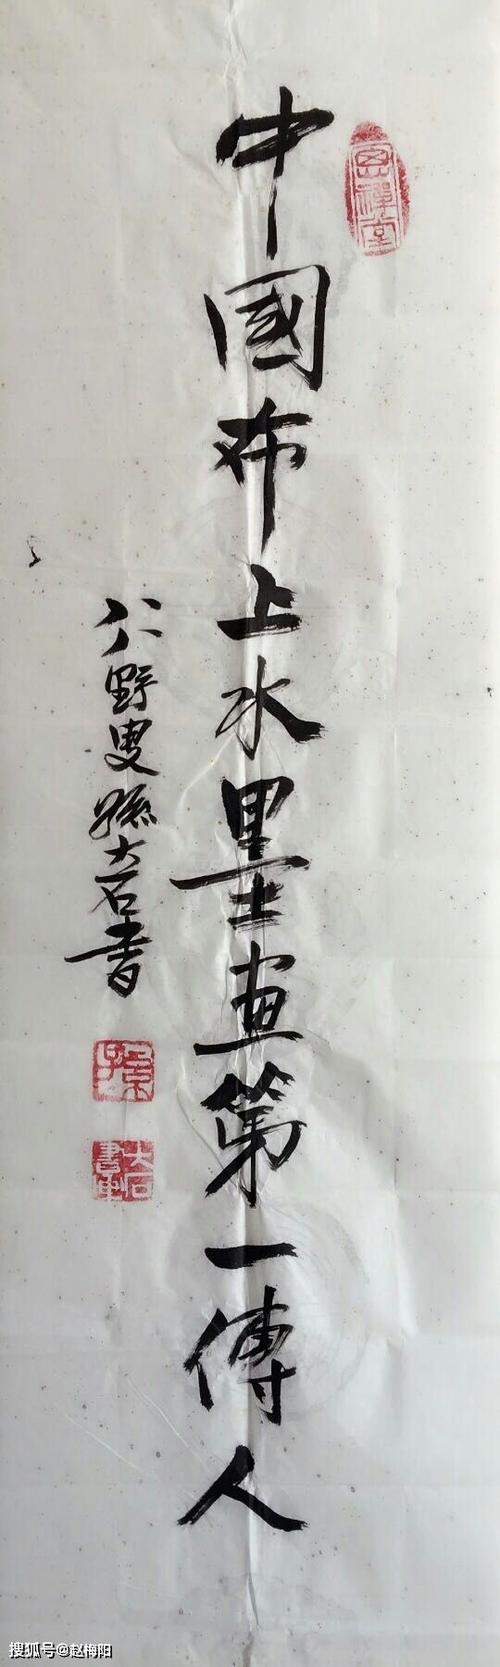 中國布上水墨画第一傳人
八八野叟孫大石書
搜狐号@赵梅阳